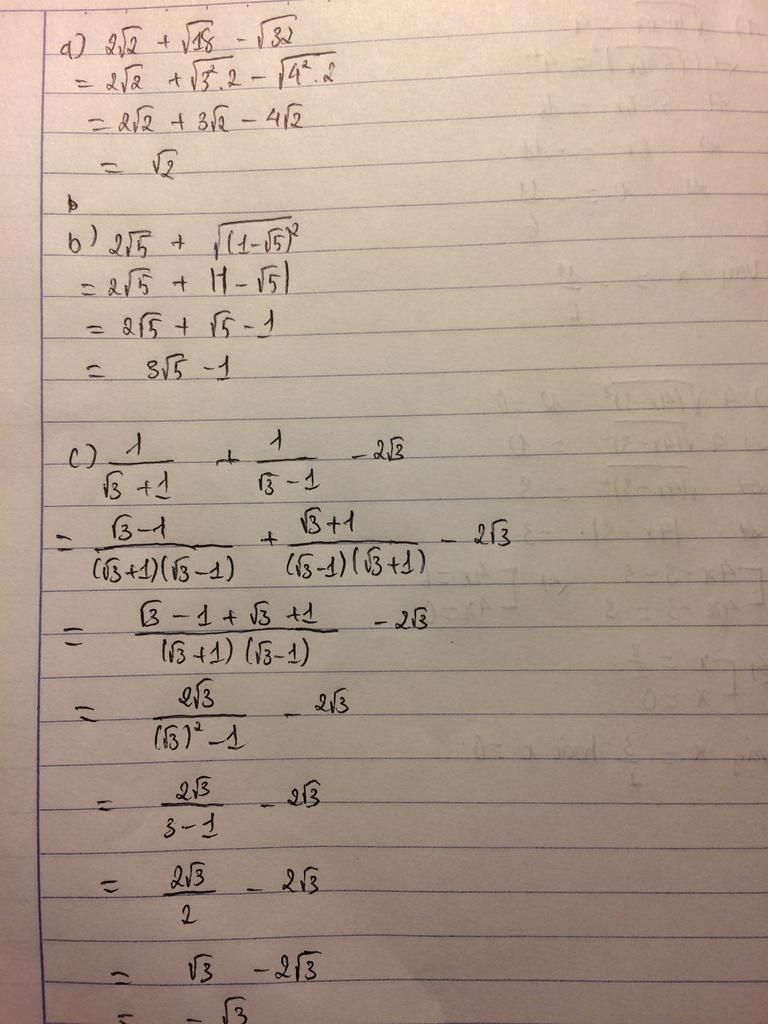 a) 2√2 + √18 - √32
= 2√2 + √(3².2) - √(4².2)
= 2√2 + 3√2 - 4√2
= √2
b
b) 2√5 + √((1-√5)²)
= 2√5 + |1 - √5|
= 2√5 + √5 - 1
= 3√5 - 1
c) 1/(√3 + 1) + 1/(√3 - 1) - 2√3
= (√3 - 1)/((√3+1)(√3-1)) + (√3 + 1)/((√3-1)(√3+1)) - 2√3
= (√3 - 1 + √3 + 1)/((√3+1)(√3-1)) - 2√3
= 2√3/((√3)² - 1) - 2√3
= 2√3/(3 - 1) - 2√3
= 2√3/2 - 2√3
= √3 - 2√3
= - √3